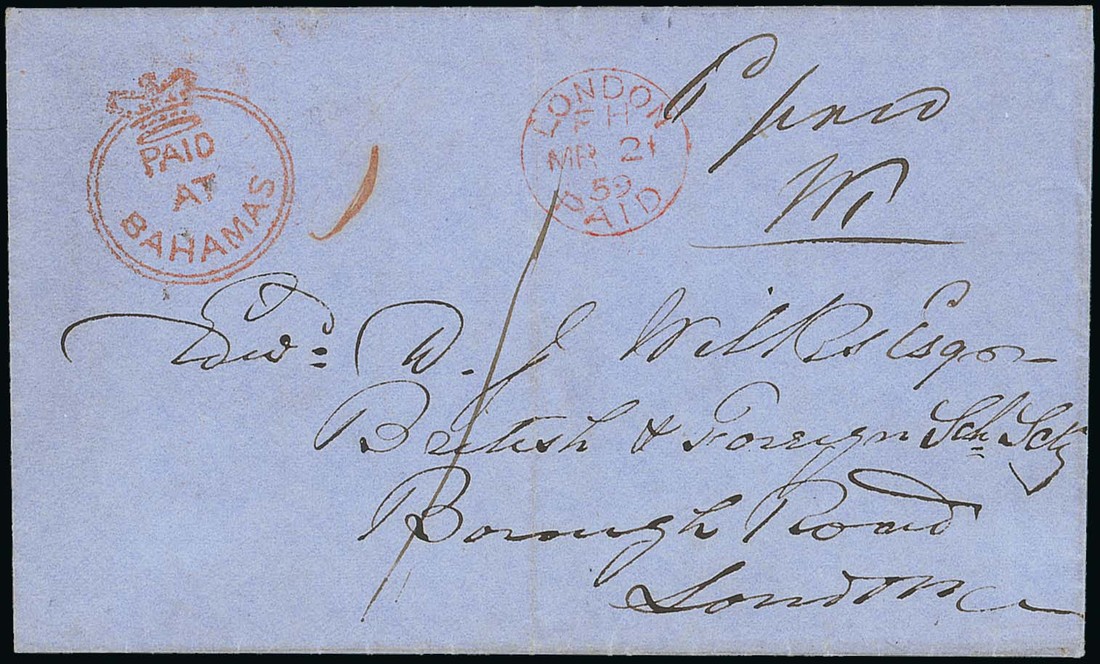 PAID
AT
BAHAMAS
LONDON
FH
MR 21
59
PAID
paid
Edwd. D. J. Wilks Esqr
British & Foreign Sch. Scty
Borough Road
London